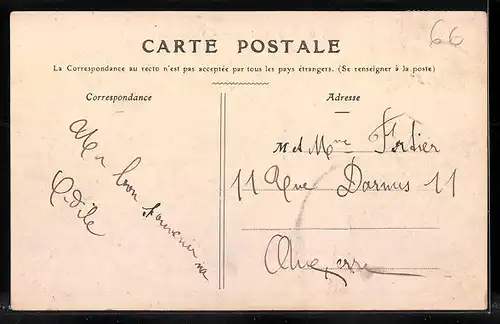 66
CARTE POSTALE
La Correspondance au recto n'est pas acceptée par tous les pays étrangers. (Se renseigner à la poste)
Correspondance
bon souvenir
Odile
Adresse
M et Mme Fortier
11 Rue 11